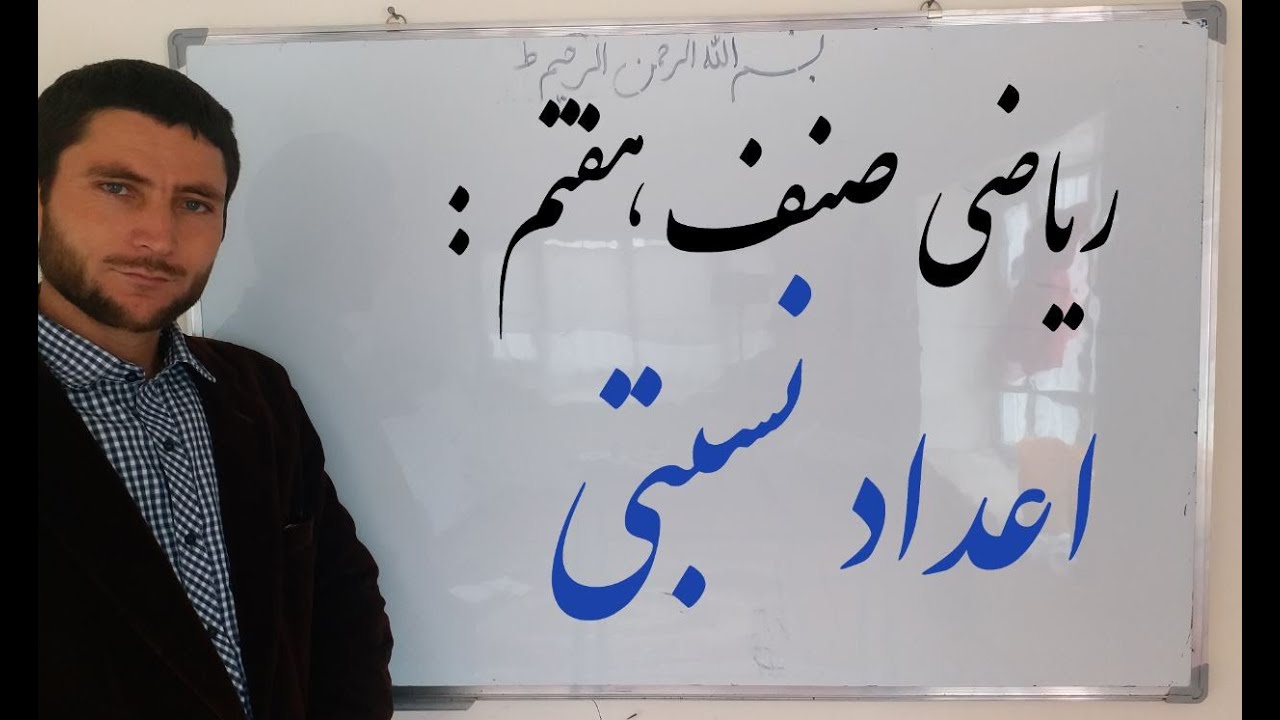 بسم الله الرحمن الرحیم ط
ریاضی صنف هفتم :
اعداد نسبتی